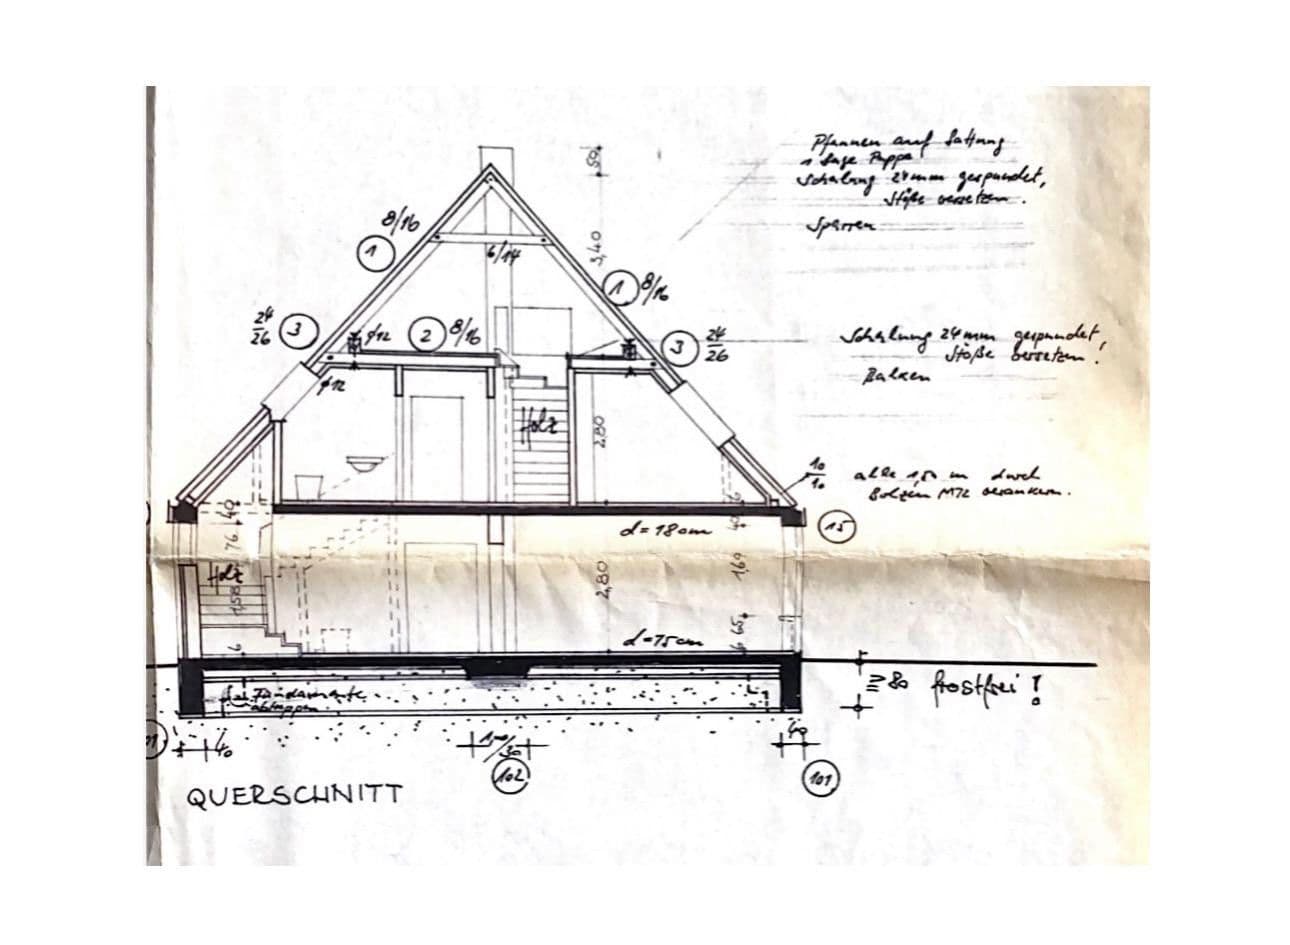 Pfannen auf Lattung
1 Lage Pappe
Schalung 24 mm gespundet,
Stöße versetzen.
Sparren
50
8/16
1
3,40
6/14
1
8/16
24/26
3
ø12
2
8/16
3
24/26
Schalung 24 mm gespundet,
Stöße versetzen.
Balken
ø12
Holz
2,80
10/10
alle 1,50 m durch
Bolzen M12 verankern.
40
6
40
d = 18 cm
15
76
Holz
1,58
2,80
1,69
65
6
6
d = 15 cm
≧ 80 frostfrei !
Fundamente
abtreppen
40
30
40
102
101
QUERSCHNITT